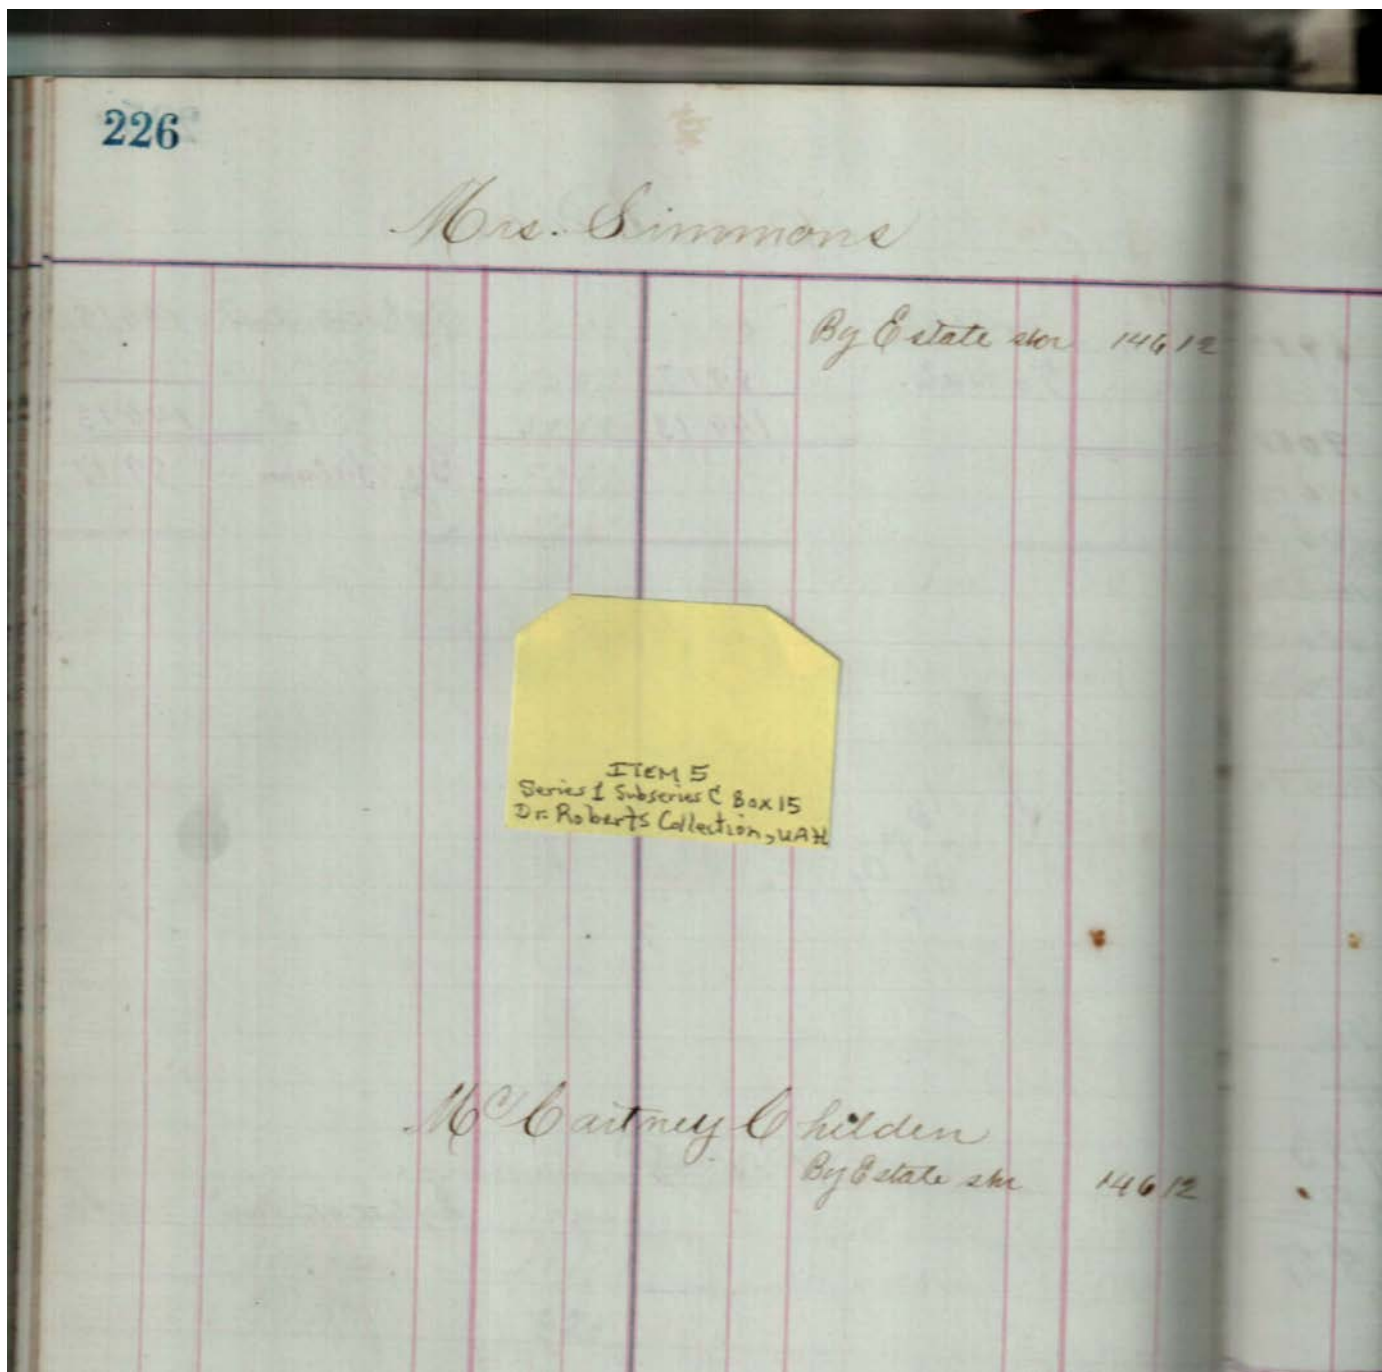 226
Mrs. Simmons
By Estate shr 146 12
ITEM 5
Series 1 Subseries C Box 15
Dr. Roberts Collection, UAH
McCartney Childen
By Estate shr 146 12